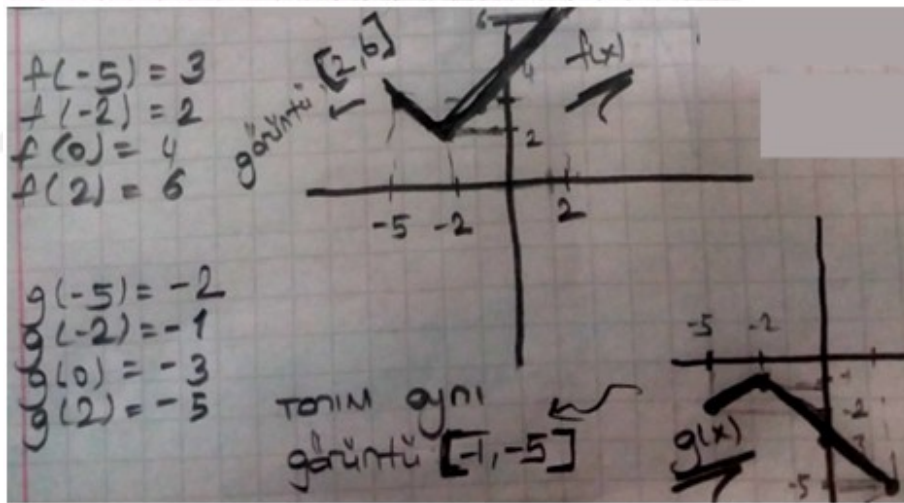 f(-5) = 3
f(-2) = 2
f(0) = 4
f(2) = 6
görüntü [2,6]
f(x)
6
4
2
-5 -2 2
g(-5) = -2
g(-2) = -1
g(0) = -3
g(2) = -5
tanım aynı
görüntü [-1,-5]
-5 -2
-1
-2
-3
-5
g(x)